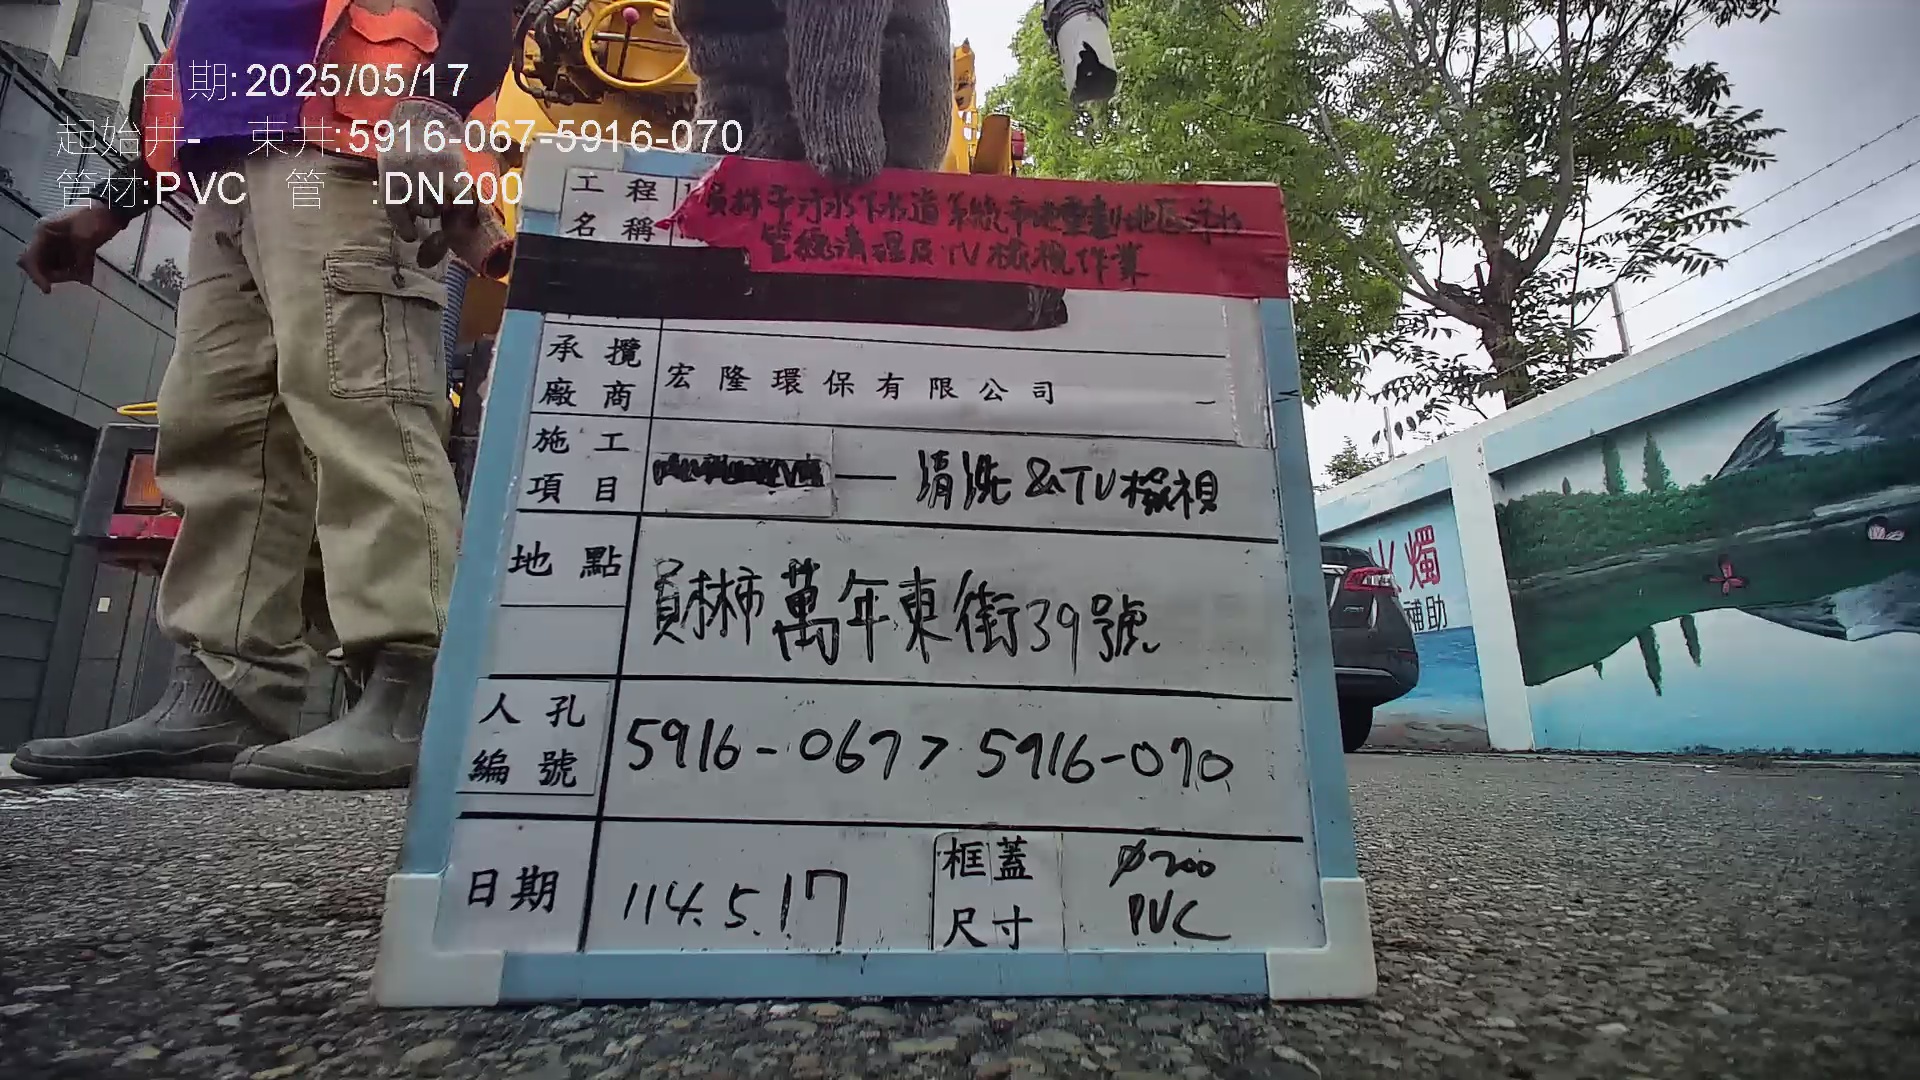 日期:2025/05/17
起始井- 束井:5916-067-5916-070
管材:PVC 管 :DN200
工程
名稱
污水下水道系統市地重劃地區污水
管線清理及TV檢視作業
承攬
廠商 宏隆環保有限公司
施工
項目 — 清洗&TV檢視
地點 員林市萬年東街39號
人孔
編號 5916-067>5916-070
日期 114.5.17
框蓋
尺寸 Ø200
PVC
火燭
補助